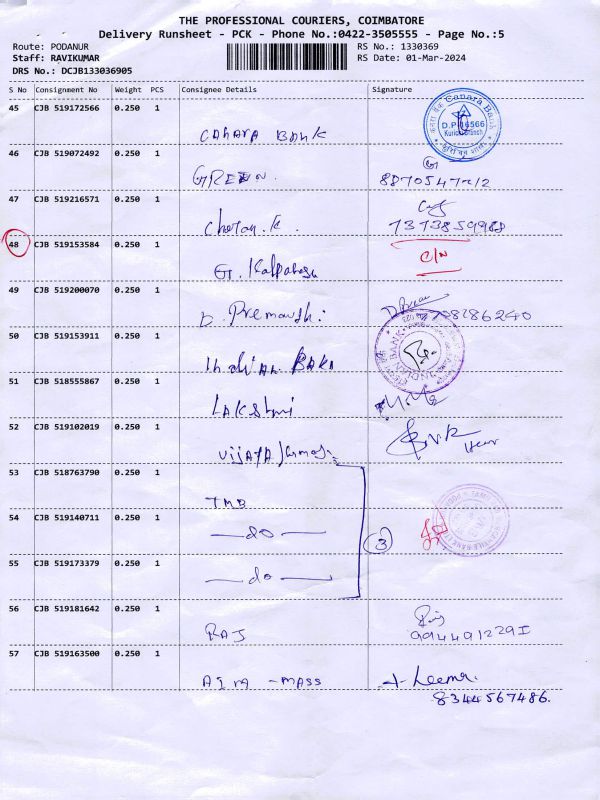 THE PROFESSIONAL COURIERS, COIMBATORE
Delivery Runsheet - PCK - Phone No.:0422-3505555 - Page No.:5
Route: PODANUR RS No.: 1330369
Staff: RAVIKUMAR RS Date: 01-Mar-2024
DRS No.: DCJB133036905
S No Consignment No Weight PCS Consignee Details Signature
45 CJB 519172566 0.250 1
CANARA BANK
Canara Bank
D.P. 16566
46 CJB 519072492 0.250 1
GREEN.
47 CJB 519216571 0.250 1
Chetan.K.
48 CJB 519153584 0.250 1
G. C/N
49 CJB 519200070 0.250 1
D.
50 CJB 519153911 0.250 1
Indian BANK
INDIAN BANK
51 CJB 518555867 0.250 1
LAKShmi
52 CJB 519102019 0.250 1
VIJAYA
53 CJB 518763790 0.250 1
TMB
54 CJB 519140711 0.250 1
—do— 3
55 CJB 519173379 0.250 1
—do—
56 CJB 519181642 0.250 1
RAJ
9944912291
57 CJB 519163500 0.250 1
MASS
8344567486.